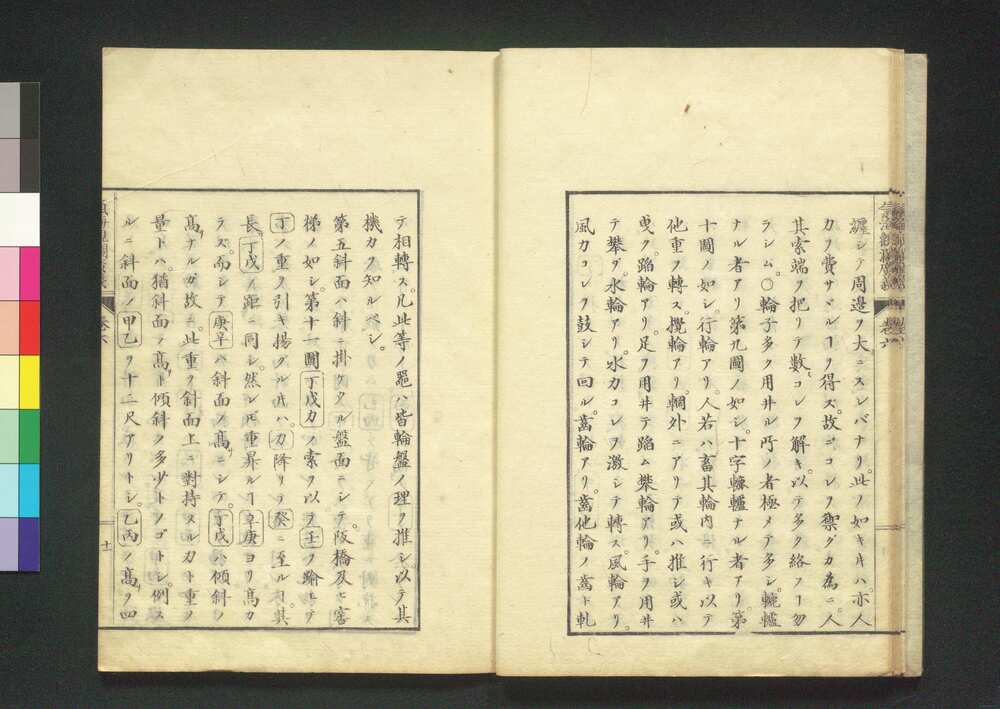 纒シテ周邊ヲ大ニスレバナリ。此ノ如キ片ハ亦人
力ヲ費サヾルヿヲ得ズ。故ニコレヲ禦グカ為ニ。人
其索端ヲ把リテ數〻コレヲ解キ。以テ多ク絡フヿ勿
ラシム。〇輪子多ク用井ル所ノ者極メテ多シ。轆轤
ナル者アリ第九圖ノ如シ。十字轆轤ナル者アリ。第
十圖ノ如シ。行輪アリ。人若ハ畜其輪内ニ行キ以テ
他重ヲ轉ス。攪輪アリ。輞外ニアリテ或ハ推シ或ハ
曳ク。踏輪アリ。足ヲ用井テ踏ム。攀輪アリ。手ヲ用井
テ攀ヅ。水輪アリ。水力コレヲ激シテ轉ス。風輪アリ。
風力コレヲ鼓シテ回ル。齒輪アリ。齒他輪ノ齒ト軋
テ相轉ス。凡此等ノ噐ハ皆輪盤ノ理ヲ推シ以テ其
機力ヲ知ルベシ。
第五斜面ハ斜ニ掛ケタル盤面ニシテ。阪橋及ビ客
梯ノ如シ。第十一圖丁戊力ノ索ヲ以テ壬ヲ踰ヱテ
丁ノ重ヲ引キ揚グル片ハ。力降リテ癸ニ至ル。其
長丁戊ノ距ニ同シ。然レ𪜈重昇ルヿ辛庚ヨリ髙カ
ラズ。而シテ庚辛ハ斜面ノ髙ニシテ。丁戊ハ傾斜ノ
髙ナルガ故ニ。此重ヲ斜面上ニ對持スル力ト重ノ
量トハ。猶斜面ノ髙ト傾斜ノ多少トノゴトシ。例ス
ルニ斜面ノ甲乙ヲ十二尺アリトシ。乙丙ノ髙ヲ四
卷六
十一